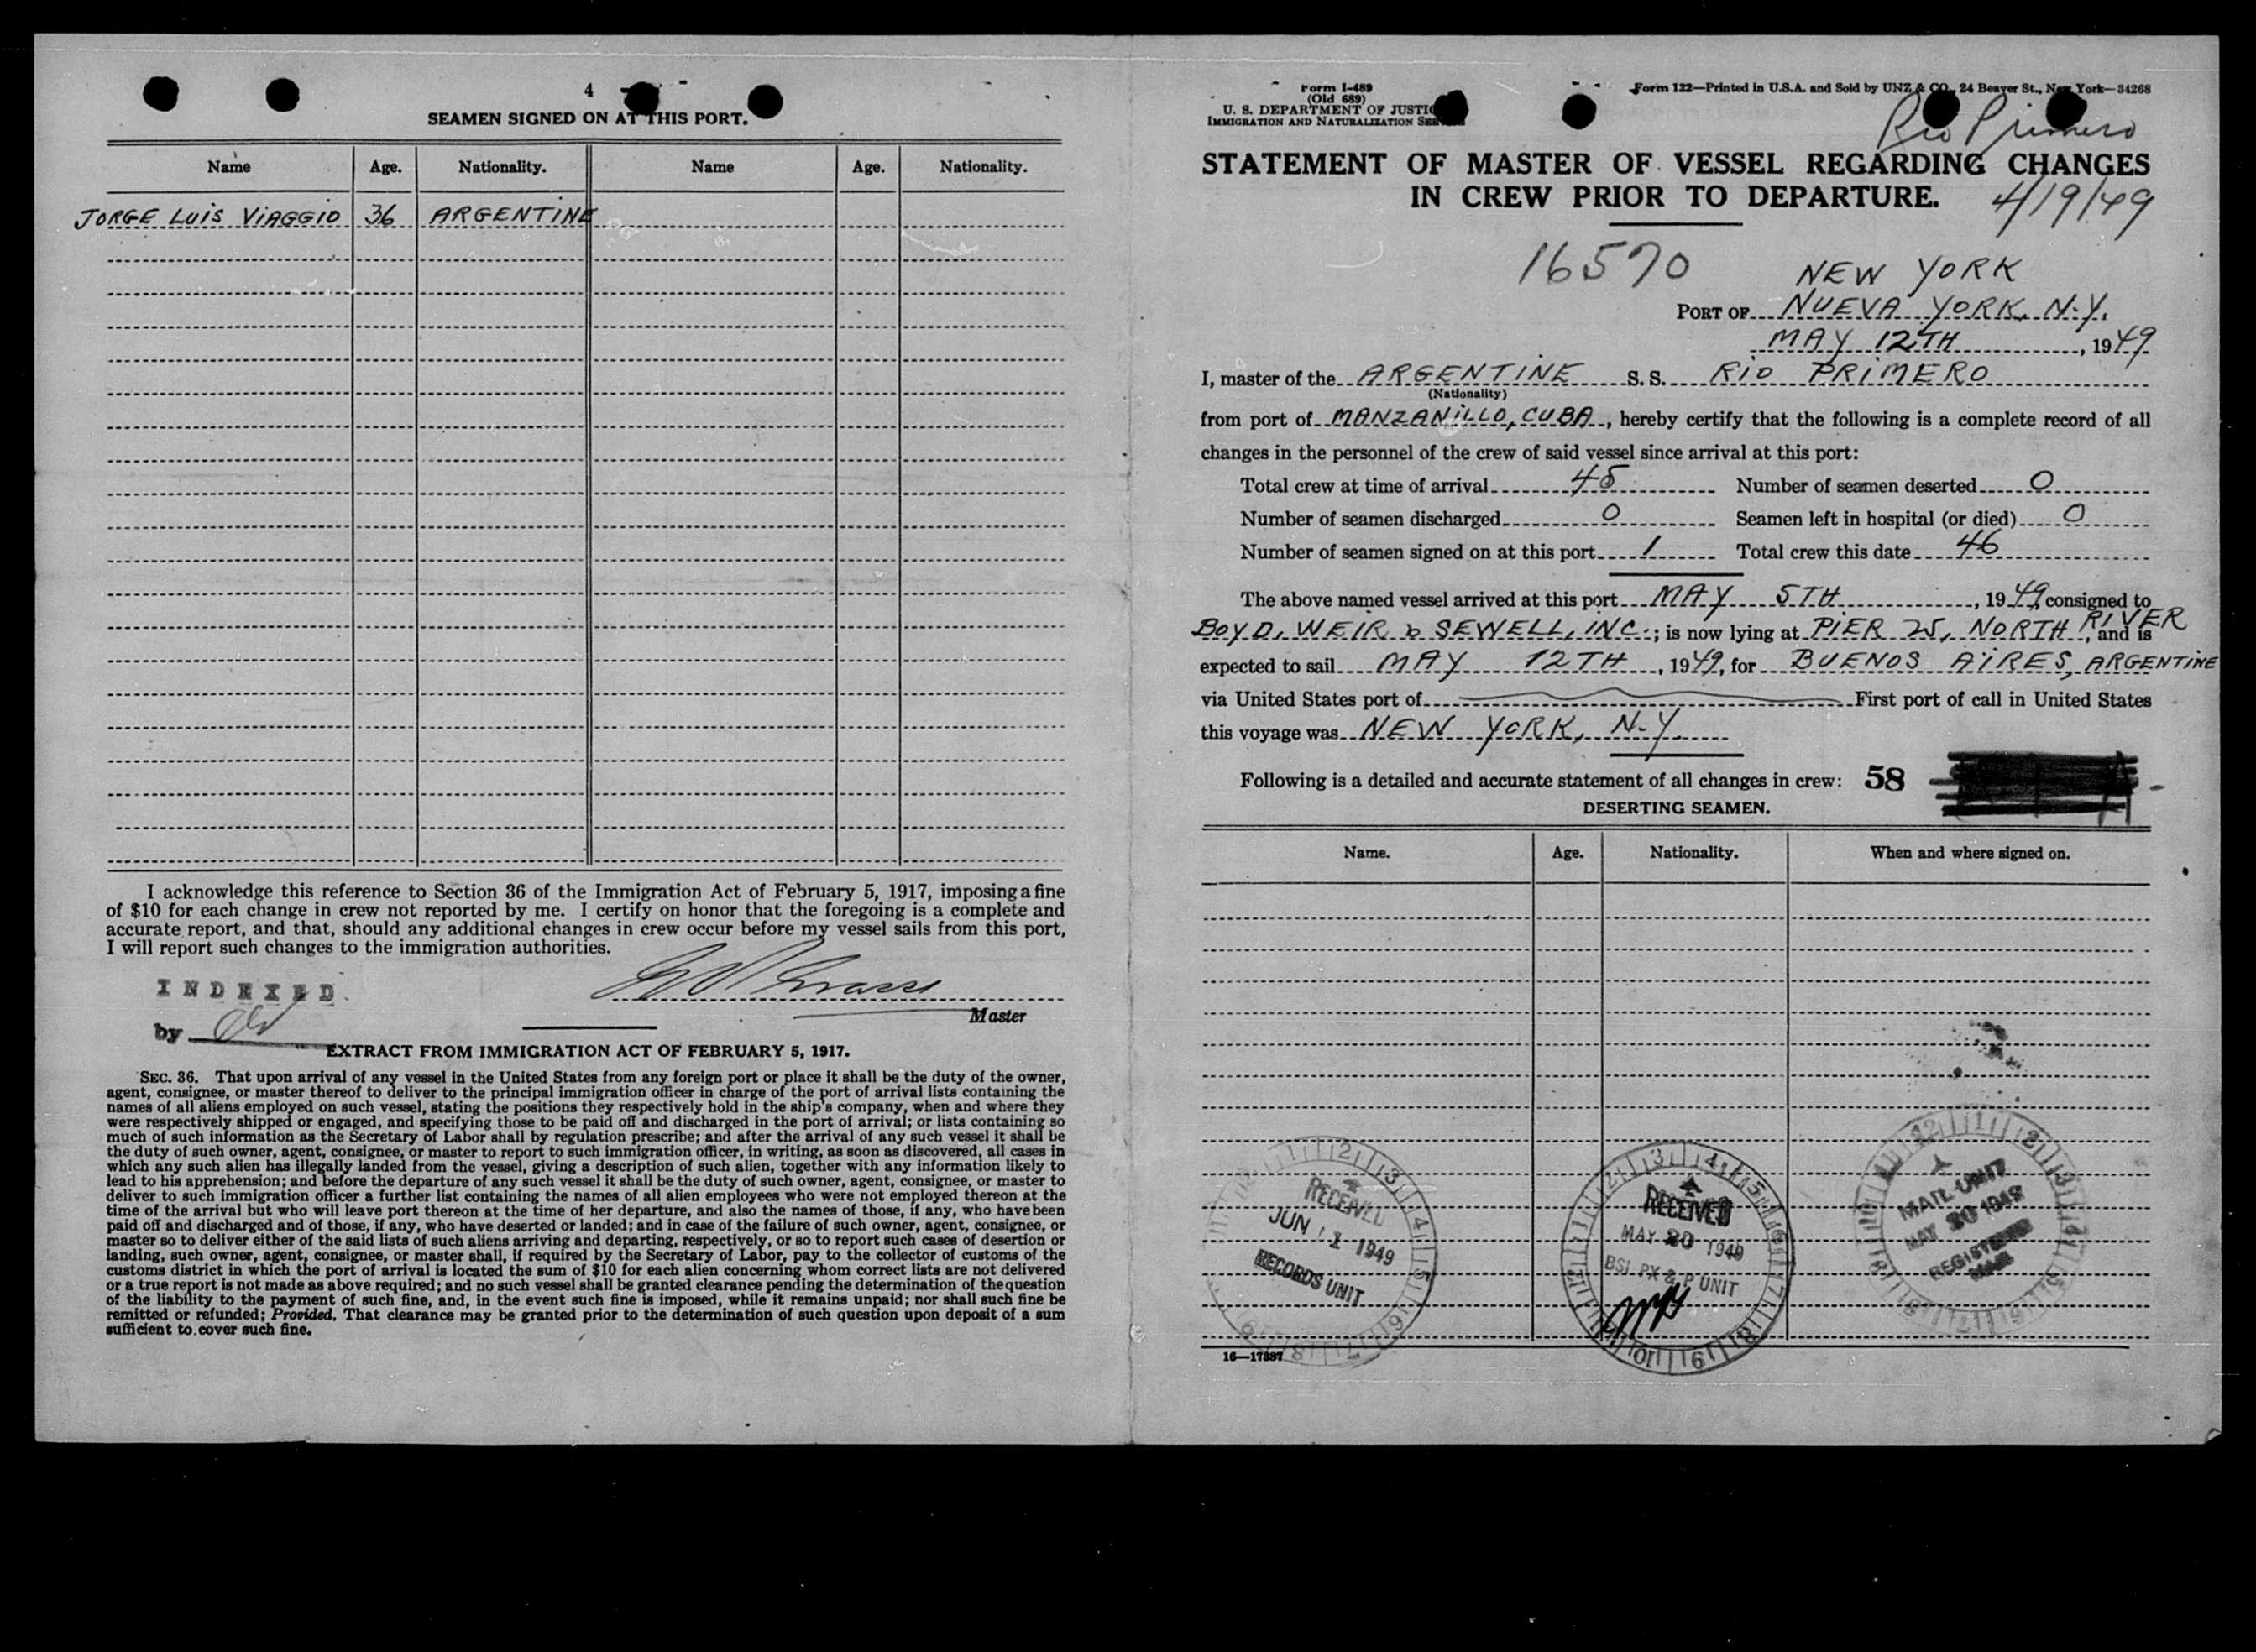 4
SEAMEN SIGNED ON AT THIS PORT.
Name Age. Nationality. Name Age. Nationality.
JORGE LUIS VIAGGIO 36 ARGENTINE
I acknowledge this reference to Section 36 of the Immigration Act of February 5, 1917, imposing a fine
of $10 for each change in crew not reported by me. I certify on honor that the foregoing is a complete and
accurate report, and that, should any additional changes in crew occur before my vessel sails from this port,
I will report such changes to the immigration authorities.
INDEXED
by
Master
EXTRACT FROM IMMIGRATION ACT OF FEBRUARY 5, 1917.
SEC. 36. That upon arrival of any vessel in the United States from any foreign port or place it shall be the duty of the owner,
agent, consignee, or master thereof to deliver to the principal immigration officer in charge of the port of arrival lists containing the
names of all aliens employed on such vessel, stating the positions they respectively hold in the ship's company, when and where they
were respectively shipped or engaged, and specifying those to be paid off and discharged in the port of arrival; or lists containing so
much of such information as the Secretary of Labor shall by regulation prescribe; and after the arrival of any such vessel it shall be
the duty of such owner, agent, consignee, or master to report to such immigration officer, in writing, as soon as discovered, all cases in
which any such alien has illegally landed from the vessel, giving a description of such alien, together with any information likely to
lead to his apprehension; and before the departure of any such vessel it shall be the duty of such owner, agent, consignee, or master to
deliver to such immigration officer a further list containing the names of all alien employees who were not employed thereon at the
time of the arrival but who will leave port thereon at the time of her departure, and also the names of those, if any, who have been
paid off and discharged and of those, if any, who have deserted or landed; and in case of the failure of such owner, agent, consignee, or
master so to deliver either of the said lists of such aliens arriving and departing, respectively, or so to report such cases of desertion or
landing, such owner, agent, consignee, or master shall, if required by the Secretary of Labor, pay to the collector of customs of the
customs district in which the port of arrival is located the sum of $10 for each alien concerning whom correct lists are not delivered
or a true report is not made as above required; and no such vessel shall be granted clearance pending the determination of the question
of the liability to the payment of such fine, and, in the event such fine is imposed, while it remains unpaid; nor shall such fine be
remitted or refunded; Provided, That clearance may be granted prior to the determination of such question upon deposit of a sum
sufficient to cover such fine.
Form I-489
(Old 689)
U. S. DEPARTMENT OF JUSTICE
IMMIGRATION AND NATURALIZATION SERVICE
Form 122—Printed in U.S.A. and Sold by UNZ & CO., 24 Beaver St., New York—34268
Rio Primero
STATEMENT OF MASTER OF VESSEL REGARDING CHANGES
IN CREW PRIOR TO DEPARTURE.
4/19/49
16570
NEW YORK
PORT OF NUEVA YORK, N.Y.
MAY 12TH, 1949
I, master of the ARGENTINE S. S. RIO PRIMERO
(Nationality)
from port of MANZANILLO, CUBA, hereby certify that the following is a complete record of all
changes in the personnel of the crew of said vessel since arrival at this port:
Total crew at time of arrival 45 Number of seamen deserted 0
Number of seamen discharged 0 Seamen left in hospital (or died) 0
Number of seamen signed on at this port 1 Total crew this date 46
The above named vessel arrived at this port MAY 5TH, 1949, consigned to
BOYD, WEIR & SEWELL, INC.; is now lying at PIER 25, NORTH RIVER, and is
expected to sail MAY 12TH, 1949, for BUENOS AIRES, ARGENTINE
via United States port of First port of call in United States
this voyage was NEW YORK, N.Y.
Following is a detailed and accurate statement of all changes in crew: 58
DESERTING SEAMEN.
Name. Age. Nationality. When and where signed on.
RECEIVED
JUN 1949
RECORDS UNIT
RECEIVED
MAY 20 1949
BSI PX & P UNIT
MAIL UNIT
MAY 20 1949
REGISTERED
16—17387